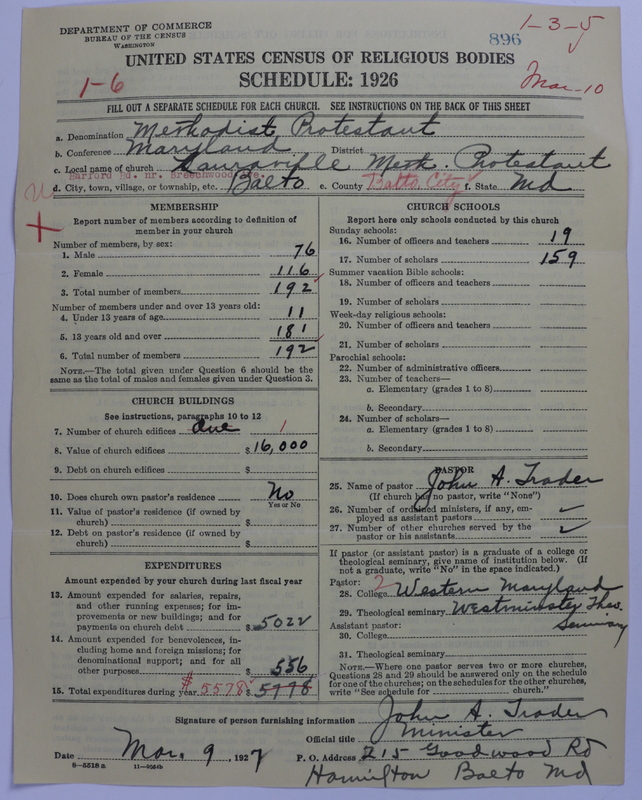 DEPARTMENT OF COMMERCE
BUREAU OF THE CENSUS
WASHINGTON
896
1-3-5
UNITED STATES CENSUS OF RELIGIOUS BODIES
1-6
SCHEDULE: 1926
Mar-10
FILL OUT A SEPARATE SCHEDULE FOR EACH CHURCH. SEE INSTRUCTIONS ON THE BACK OF THIS SHEET
a. Denomination Methodist Protestant
b. Conference Maryland District
c. Local name of church Lauraville Meth. Protestant
Harford Rd. nr. Breechwood Ave.
d. City, town, village, or township, etc. Balto e. County Balto City f. State Md
MEMBERSHIP
Report number of members according to definition of member in your church
Number of members, by sex:
1. Male 76
2. Female 116
3. Total number of members 192
Number of members under and over 13 years old:
4. Under 13 years of age 11
5. 13 years old and over 181
6. Total number of members 192
NOTE.—The total given under Question 6 should be the
same as the total of males and females given under Question 3.
CHURCH BUILDINGS
See instructions, paragraphs 10 to 12
7. Number of church edifices One 1
8. Value of church edifices $16,000
9. Debt on church edifices $
10. Does church own pastor's residence No
Yes or No
11. Value of pastor's residence (if owned by
church) $
12. Debt on pastor's residence (if owned by
church) $
EXPENDITURES
Amount expended by your church during last fiscal year
13. Amount expended for salaries, repairs,
and other running expenses; for im-
provements or new buildings; and for
payments on church debt $5022
14. Amount expended for benevolences, in-
cluding home and foreign missions; for
denominational support; and for all
other purposes $556
15. Total expenditures during year $5578 $5778
CHURCH SCHOOLS
Report here only schools conducted by this church
Sunday schools:
16. Number of officers and teachers 19
17. Number of scholars 159
Summer vacation Bible schools:
18. Number of officers and teachers
19. Number of scholars
Week-day religious schools:
20. Number of officers and teachers
21. Number of scholars
Parochial schools:
22. Number of administrative officers
23. Number of teachers—
a. Elementary (grades 1 to 8)
b. Secondary
24. Number of scholars—
a. Elementary (grades 1 to 8)
b. Secondary
PASTOR
25. Name of pastor John A. Trader
(If church has no pastor, write "None")
26. Number of ordained ministers, if any, em-
ployed as assistant pastors
27. Number of other churches served by the
pastor or his assistants
If pastor (or assistant pastor) is a graduate of a college or
theological seminary, give name of institution below. (If
not a graduate, write "No" in the space indicated.)
Pastor:
28. College Western Maryland
29. Theological seminary Westminster Theo.
Seminary
Assistant pastor:
30. College
31. Theological seminary
NOTE.—Where one pastor serves two or more churches,
Questions 28 and 29 should be answered only on the schedule
for one of the churches; on the schedules for the other churches,
write "See schedule for church."
Signature of person furnishing information John A. Trader
Official title Minister
Date Mar. 9, 1927 P. O. Address 215 Goodwood Rd
8—5518 a 11—9054b
Hamilton Balto Md